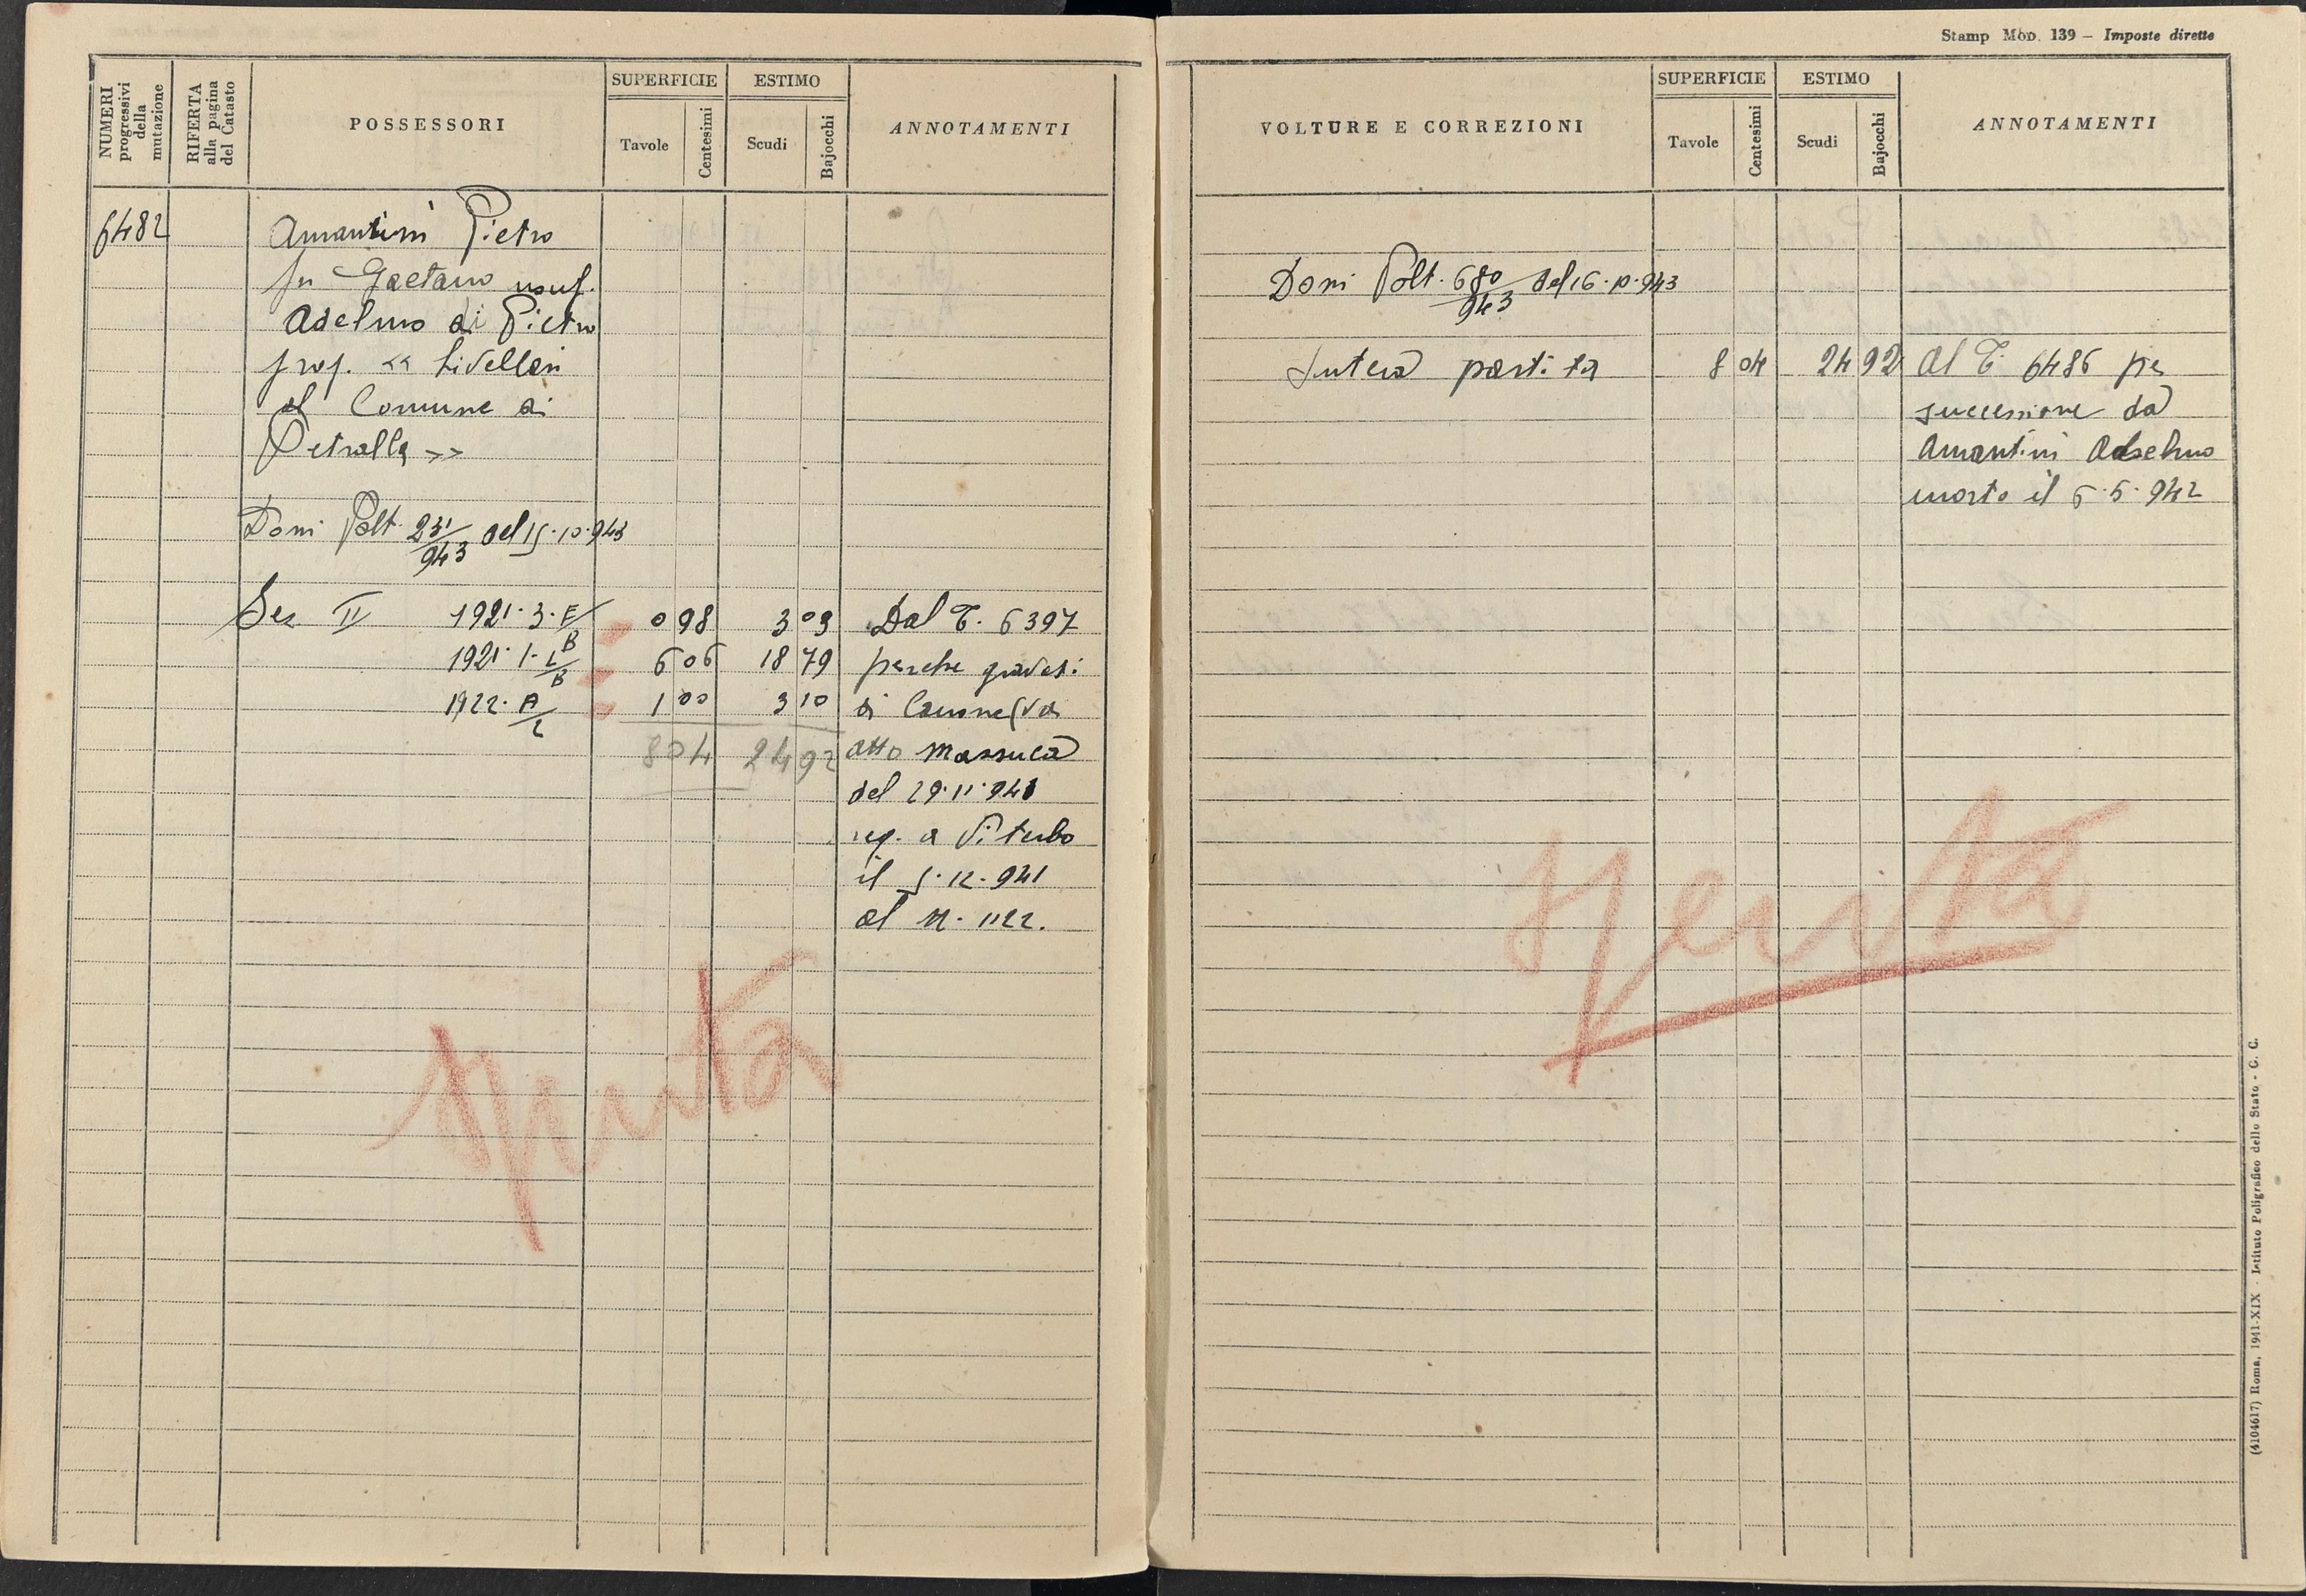 Stamp Mod. 139 – Imposte dirette
NUMERI progressivi della mutazione
RIFERTA alla pagina del Catasto
POSSESSORI
SUPERFICIE
Tavole
Centesimi
ESTIMO
Scudi
Bajocchi
ANNOTAMENTI
6482
Amantini Pietro
fu Gaetano usuf.
Adelmo di Pietro
prop. << Livellari
al Comune di
Vetralla >>
Dom Volt. 231/943 del 15.10.943
Sez II 1921.3.E/B 0 98 3 09 Dal T. 6397
1921.1.L/B 6 06 18 79 perche gravati
1922.A/2 1 00 3 10 di Canone (Vd
8 04 24 92 atto Massuca
del 29.11.941
reg. a Viterbo
il 5.12.941
al N. 1122.
spenta
VOLTURE E CORREZIONI
SUPERFICIE
Tavole
Centesimi
ESTIMO
Scudi
Bajocchi
ANNOTAMENTI
Dom Volt. 680/943 del 16.10.943
Intera partita 8 04 24 92 Al T. 6486 per
successione da
Amantini Adelmo
morto il 5.5.942
spenta
(4104617) Roma, 1941-XIX - Istituto Poligrafico dello Stato - G. C.